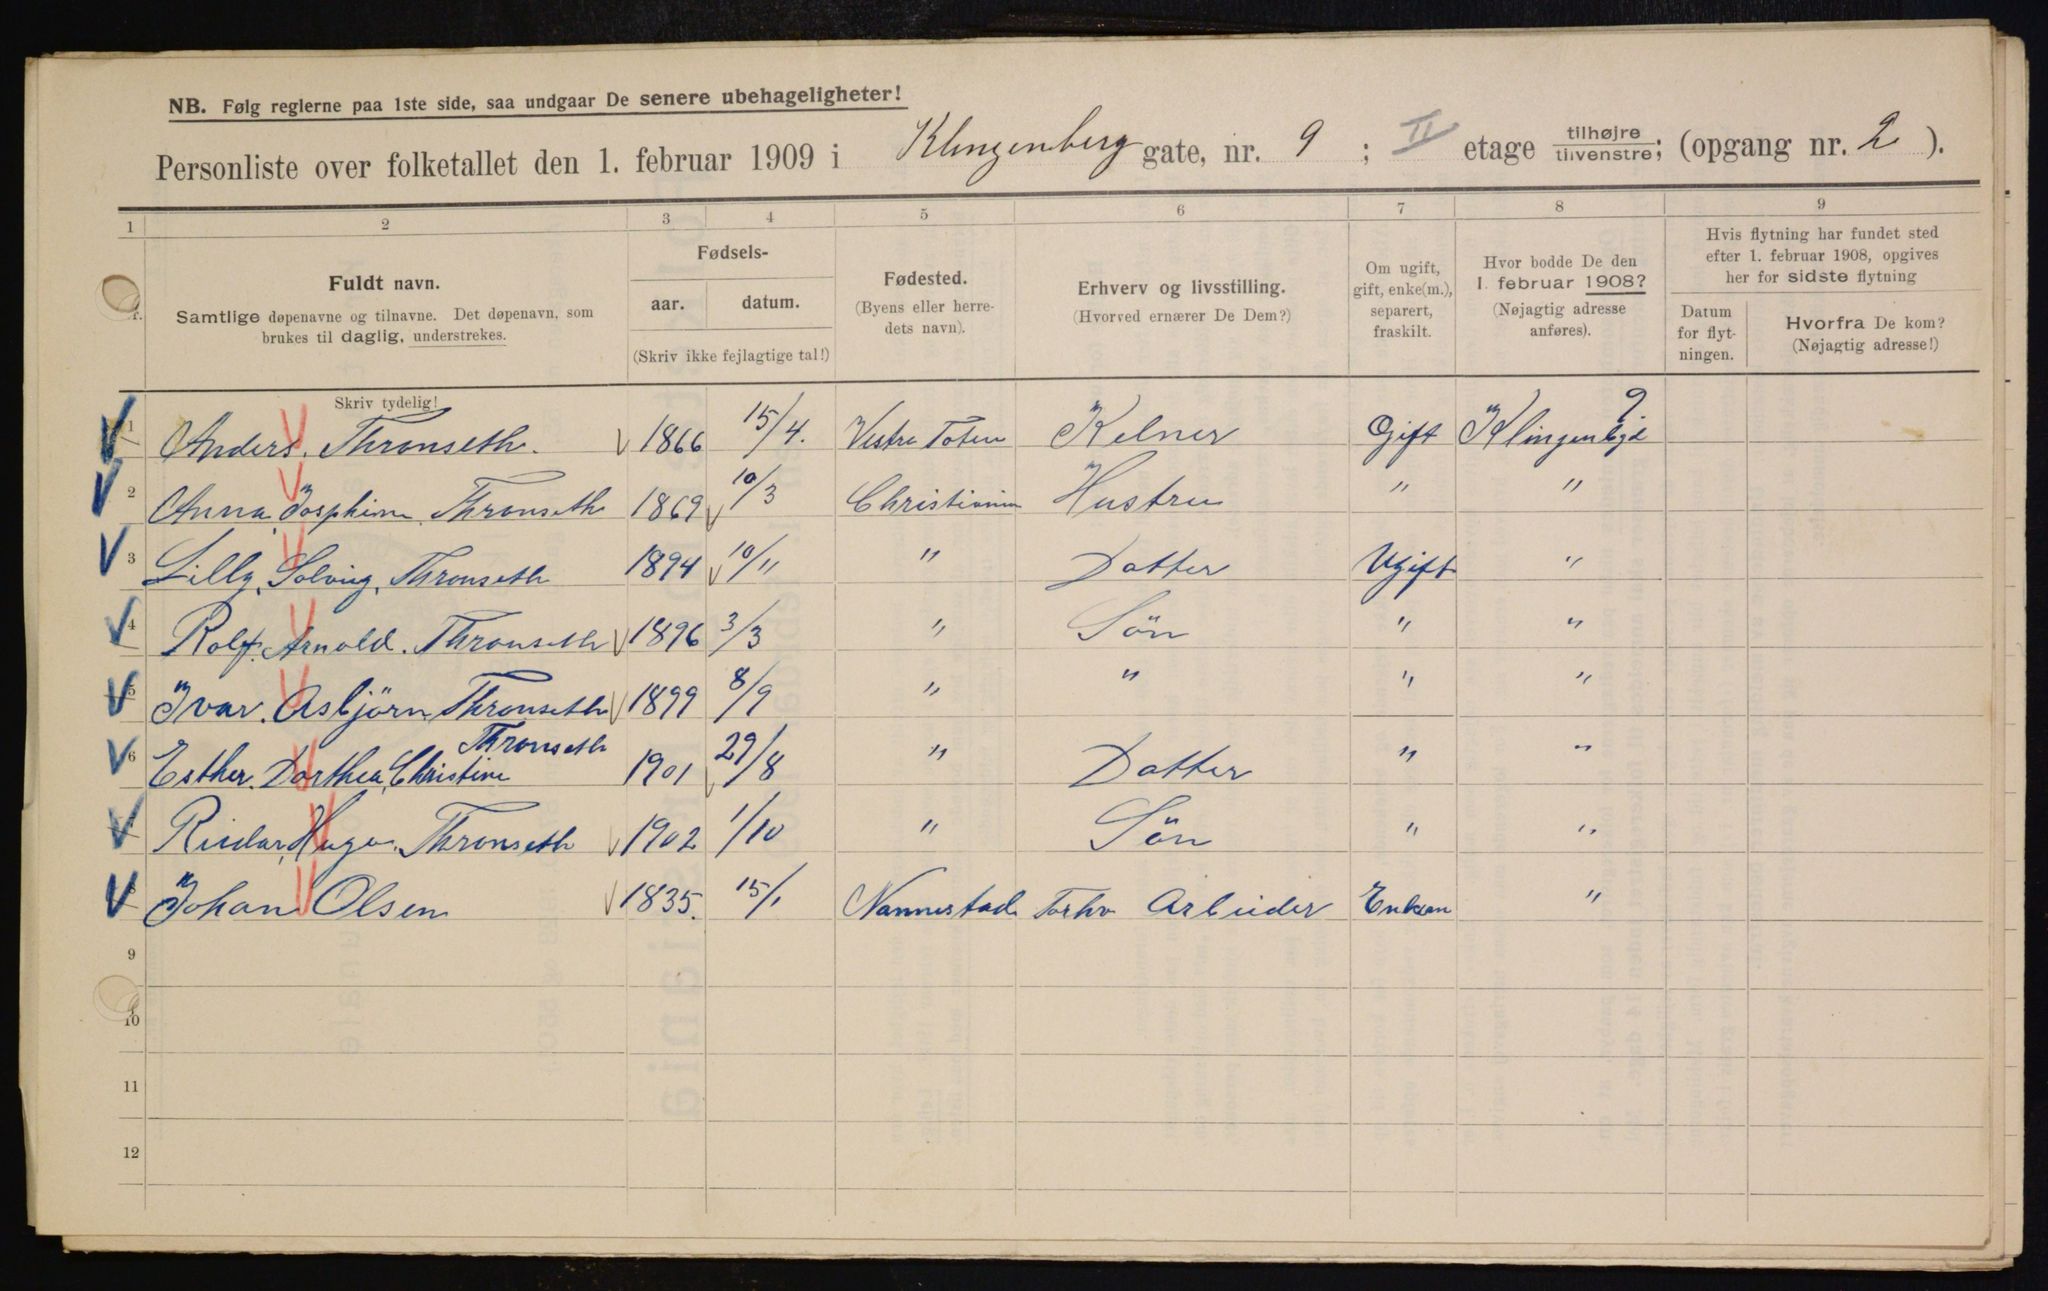 NB. Følg reglerne paa 1ste side, saa undgaar De senere ubehageligheter!
Personliste over folketallet den 1. februar 1909 i Klingenberg gate, nr. 9 ; II etage tilhøjre / tilvenstre; (opgang nr. 2 ).
1 2 3 4 5 6 7 8 9
Fuldt navn.
Samtlige døpenavne og tilnavne. Det døpenavn, som
brukes til daglig, understrekes.
Fødsels-
aar. datum.
(Skriv ikke fejlagtige tal!)
Fødested.
(Byens eller herre-
dets navn).
Erhverv og livsstilling.
(Hvorved ernærer De Dem?)
Om ugift,
gift, enke(m.),
separert,
fraskilt.
Hvor bodde De den
1. februar 1908?
(Nøjagtig adresse
anføres).
Hvis flytning har fundet sted
efter 1. februar 1908, opgives
her for sidste flytning
Datum
for flyt-
ningen.
Hvorfra De kom?
(Nøjagtig adresse!)
Skriv tydelig!
1 Anders. Thronseth. 1866 15/4. Vestre Toten Kelner Gift Klingenbgd 9
2 Anna Josphine Thronseth 1869 10/3 Christiania Hustru " "
3 Lilly. Solvig. Thronseth 1894 10/11 " Datter Ugift "
4 Rolf. Arnold. Thronseth 1896 3/3 " Sön " "
5 Ivar. Asbjörn Thronseth 1899 8/9 " " " "
6 Esther. Dorthea Christine Thronseth 1901 29/8 " Datter " "
Reidar Hugo. Thronseth 1902 1/10 " Sön " "
8 Johan Olsen 1835. 15/1 Nannestad Forhv Arbeider "
9
10
11
12